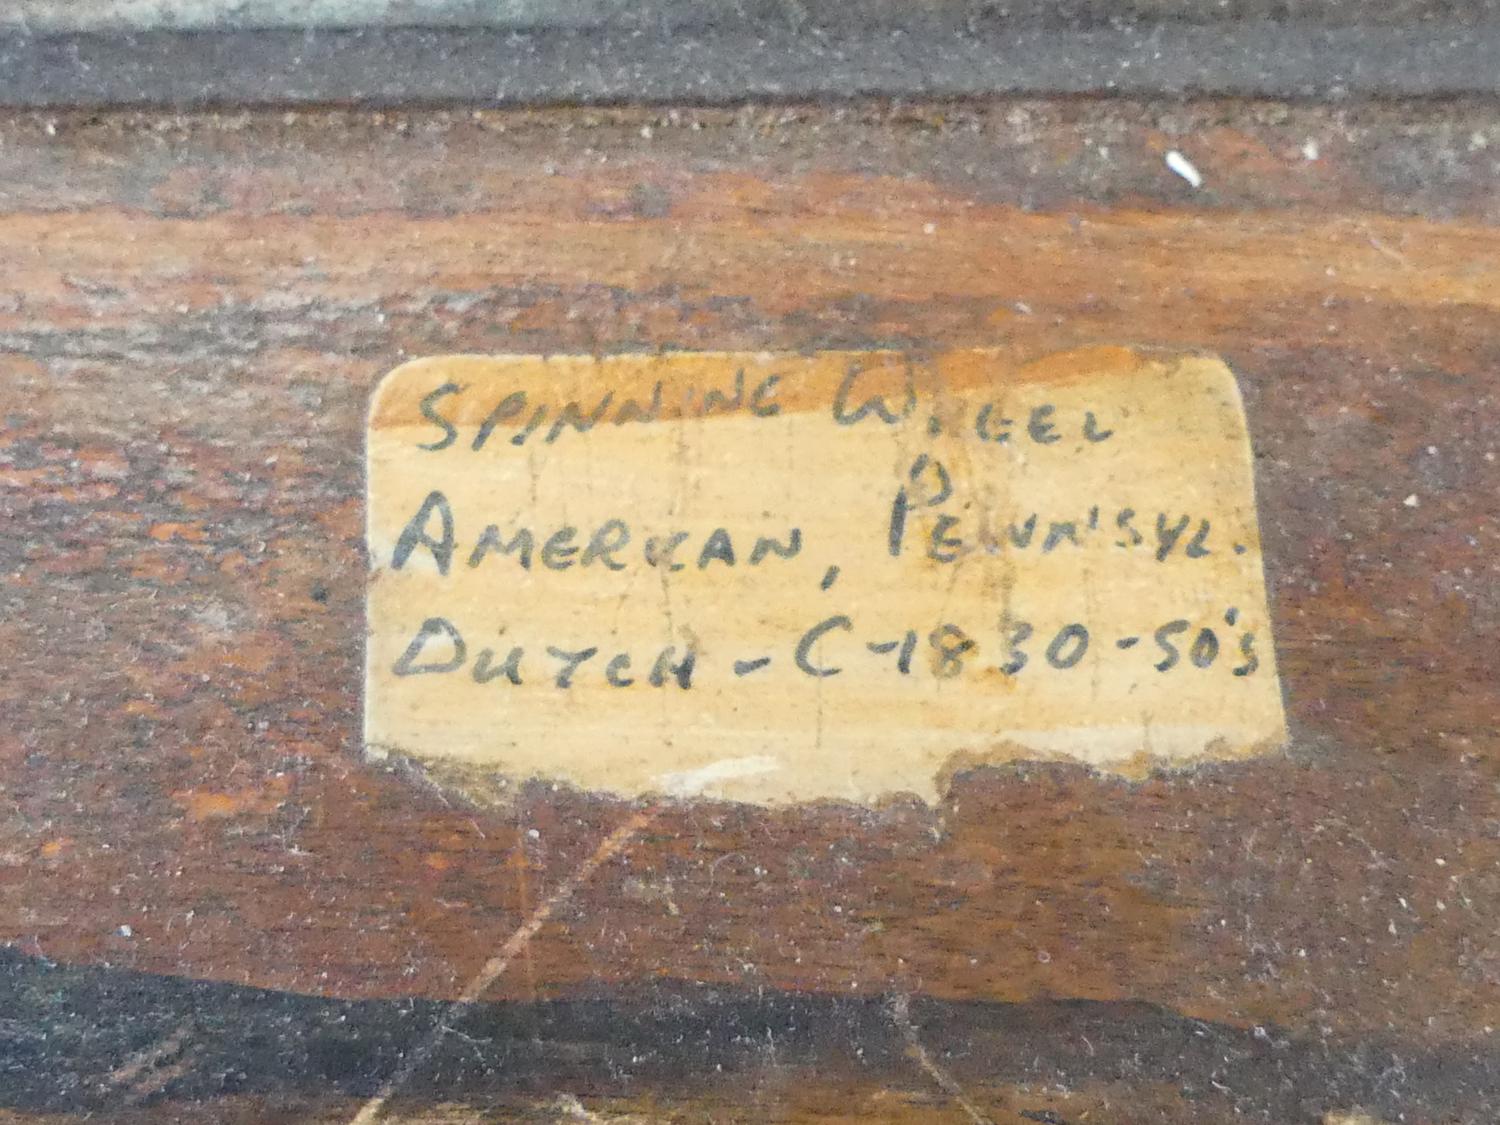 SPINNING WHEEL
AMERICAN, PENN'SYL.
DUTCH - C-1830-50's